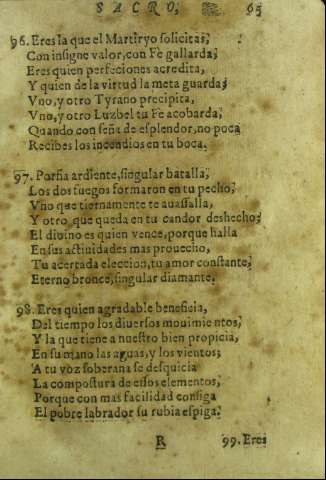 SACRO, 65
96. Eres la que el Martiryo solicitas,
Con insigne valor, con Fè gallarda;
Eres quien perfeciones acredita,
Y quien de la virtud la meta guarda;
Vno, y otro Tyrano precipita,
Vno, y otro Luzbel tu Fè acobarda;
Quando con seña de esplendor, no poca
Recibes los incendios en tu boca.
97. Porfia ardiente, singular batalla,
Los dos fuegos formaron en tu pecho;
Vno que tiernamente te auassalla,
Y otro que queda en tu candor deshecho;
El diuino es quien vence, porque halla
En sus actiuidades mas prouecho,
Tu acertada eleccion, tu amor constante,
Eterno bronce, singular diamante.
98. Eres quien agradable beneficia,
Del tiempo los diuersos mouimientos,
Y la que tiene a nuestro bien propicia,
En su mano las aguas, y los vientos;
A tu voz soberana se desquicia
La compostura de essos elementos,
Porque con mas facilidad consiga
El pobre labrador su rubia espiga.
R 99. Eres